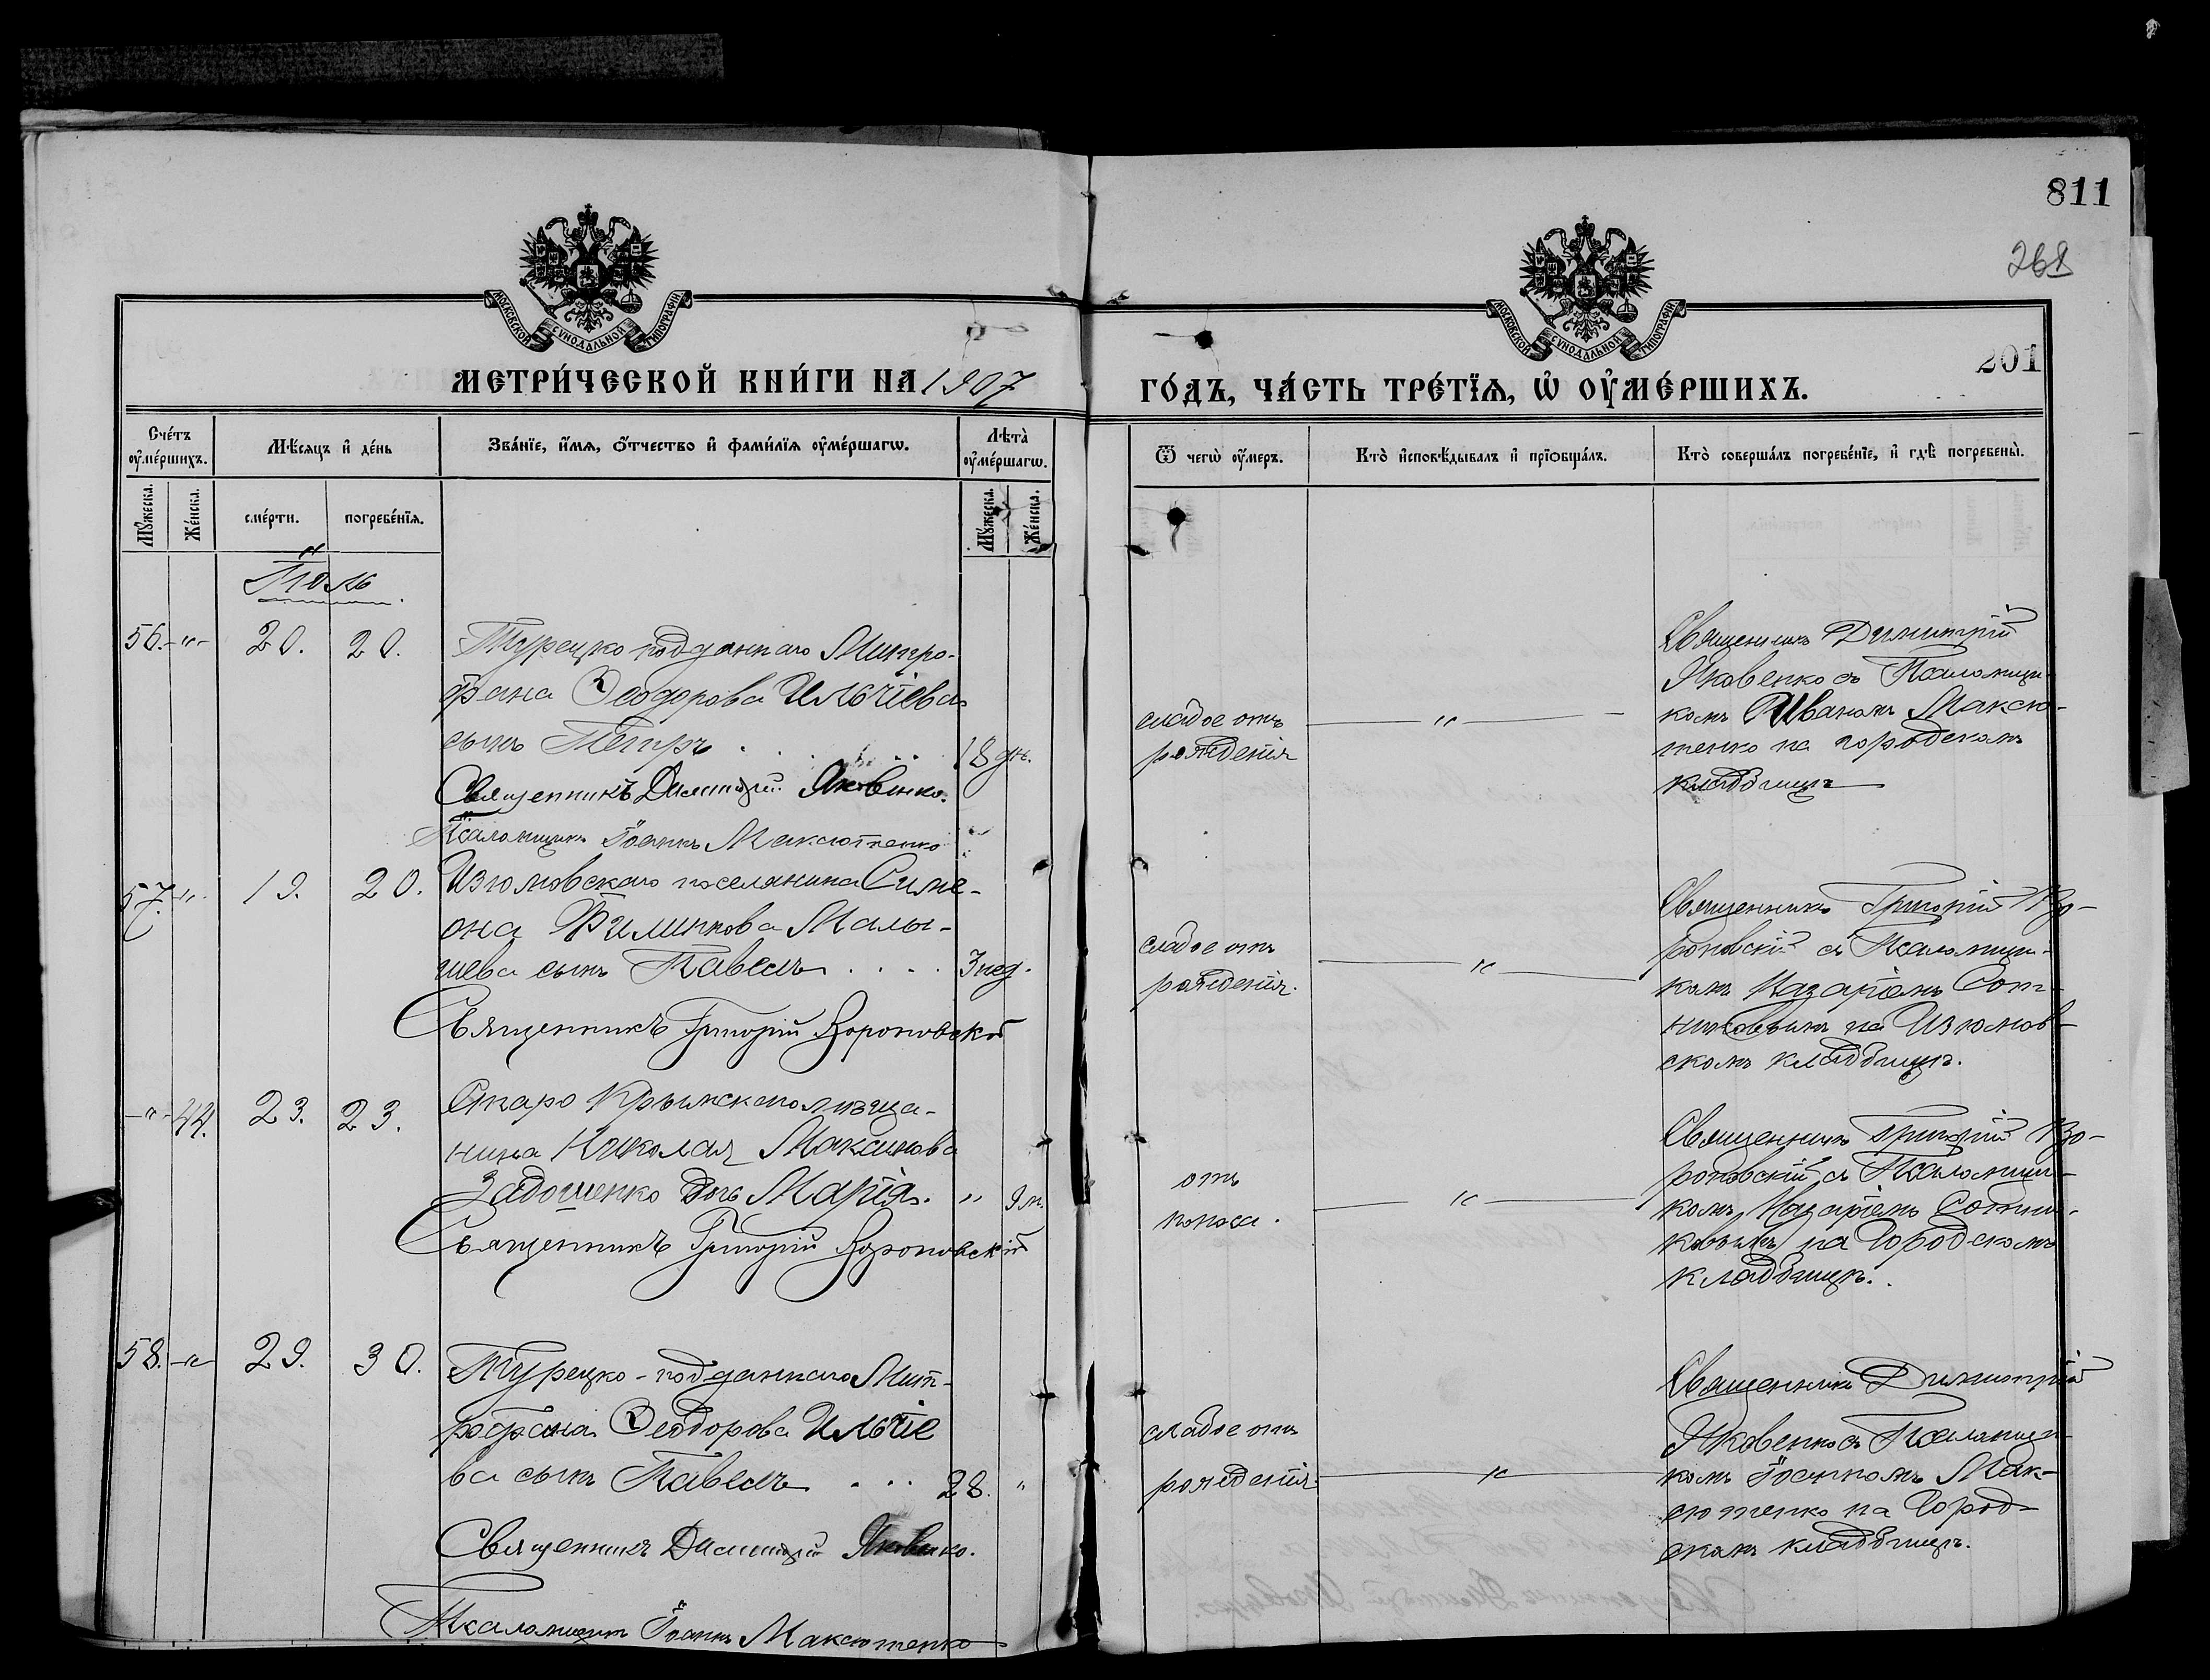 811
268
201
МОСКОВСКОЙ СѴНОДАЛЬНОЙ ТИПОГРАФІИ
МОСКОВСКОЙ СѴНОДАЛЬНОЙ ТИПОГРАФІИ
МЕТРИ́ЧЕСКОЙ КНИ́ГИ НА 1907
ГО́ДЪ, ЧА́СТЬ ТРЕ́ТЇѦ, Ѡ҆ ОУ҆МЕ́РШИХЪ.
Сче́тъ оу҆ме́ршихъ.
Мѣ́сяцъ и҆ де́нь
Зва́нїе, и҆́мѧ, ѻ҆́тчество и҆ фами́лїѧ оу҆ме́ршагѡ.
Лѣта̀ оу҆ме́ршагѡ.
Ѿ чегѡ̀ оу҆́меръ.
Кто̀ и҆сповѣ́дывалъ и҆ прїѡбща́лъ.
Кто̀ соверша́лъ погребе́нїе, и҆ гдѣ̀ погребены̀.
Мꙋ́жеска.
Же́нска.
сме́рти.
погребе́нїѧ.
Мꙋ́жеска.
Же́нска.
Іюль
56. -"- 20. 20.
Турецко-подданнаго Митро-
фана Ѳеодорова Ильчіева
сынъ Петръ . . . . . 18 дн.
Священникъ Димитрій Яковенко.
Псаломщикъ Іоаннъ Максютенко
слабое отъ
рожденія
"
Священникъ Димитрій
Яковенко съ Псаломщи-
комъ Иваномъ Максю-
тенко на городскомъ
кладбищѣ
57. -"- 19. 20.
Изюмовскаго поселянина Симе-
она Филиппова Малы-
шева сынъ Павелъ . . . . 3 нед.
Священникъ Григорій Вороновскій
слабое отъ
рожденія.
"
Священникъ Григорій Во-
роновскій съ Псаломщи-
комъ Назаріемъ Сот-
никовымъ на Изюмов-
скомъ кладбищѣ.
-"- 44. 23. 23.
Старо Крымскаго мѣща-
нина Николая Максимова
Задошенко дочь Марія. " 9 м.
Священникъ Григорій Вороновскій
отъ
поноса.
"
Священникъ Григорій Во-
роновскій съ Псаломщи-
комъ Назаріемъ Сотни-
ковымъ на Городскомъ
кладбищѣ.
58. -"- 29. 30.
Турецко-подданнаго Мит-
рофана Ѳеодорова Ильчіе
ва сынъ Павелъ . . . 28. "
Священникъ Димитрій Яковенко.
Псаломщикъ Іоаннъ Максютенко
слабое отъ
рожденія.
"
Священникъ Димитрій
Яковенко съ Псаломщи-
комъ Іоанномъ Мак-
сютенко на Город-
скомъ кладбищѣ.